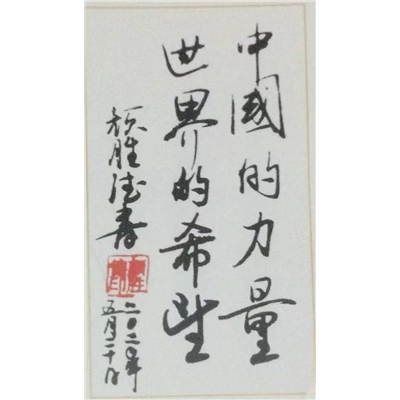 中國的力量
世界的希望
二〇二〇年
五月二十日